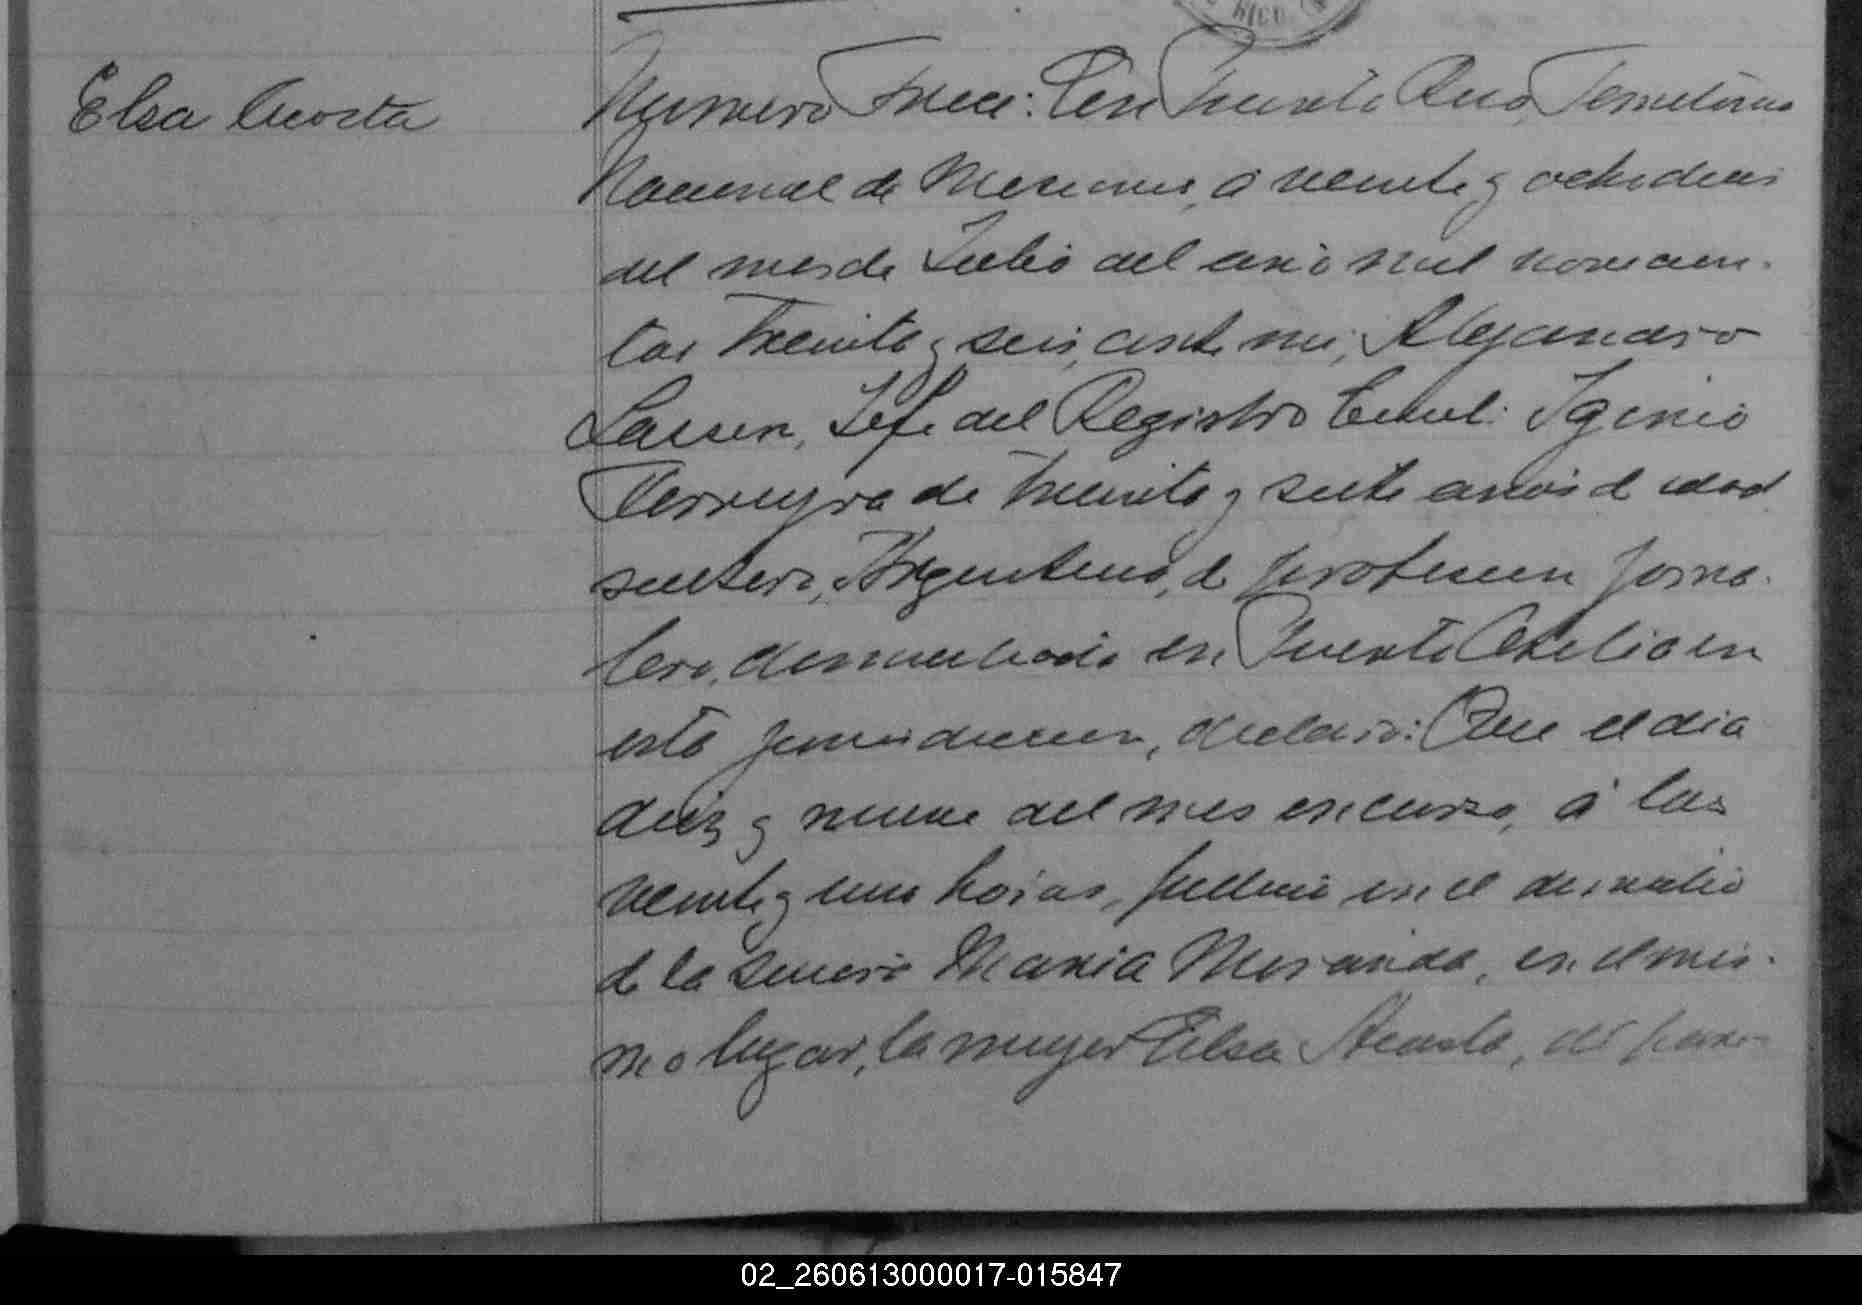 RICO
Elsa Acosta
Numero Trece: En Puerto Rico, Territorio
Nacional de Misiones, á veinte y ocho dias
del mes de Julio del año mil novecien-
tos treinta y seis, ante mi, Alejandro
Larsen, Jefe del Registro Civil: Iginio
Ferreyra de treinta y siete años de edad
soltero, Argentino, de profesion jorna-
lero, domiciliado en Puerto Oasis en
esta jurisdiccion, declaró: Que el dia
diez y nueve del mes en curso, á las
veinte y una horas, fallecio en el domicilio
de la señora Maria Miranda, en el mis-
mo lugar, la mujer Elsa Acosta, de
02_260613000017-015847